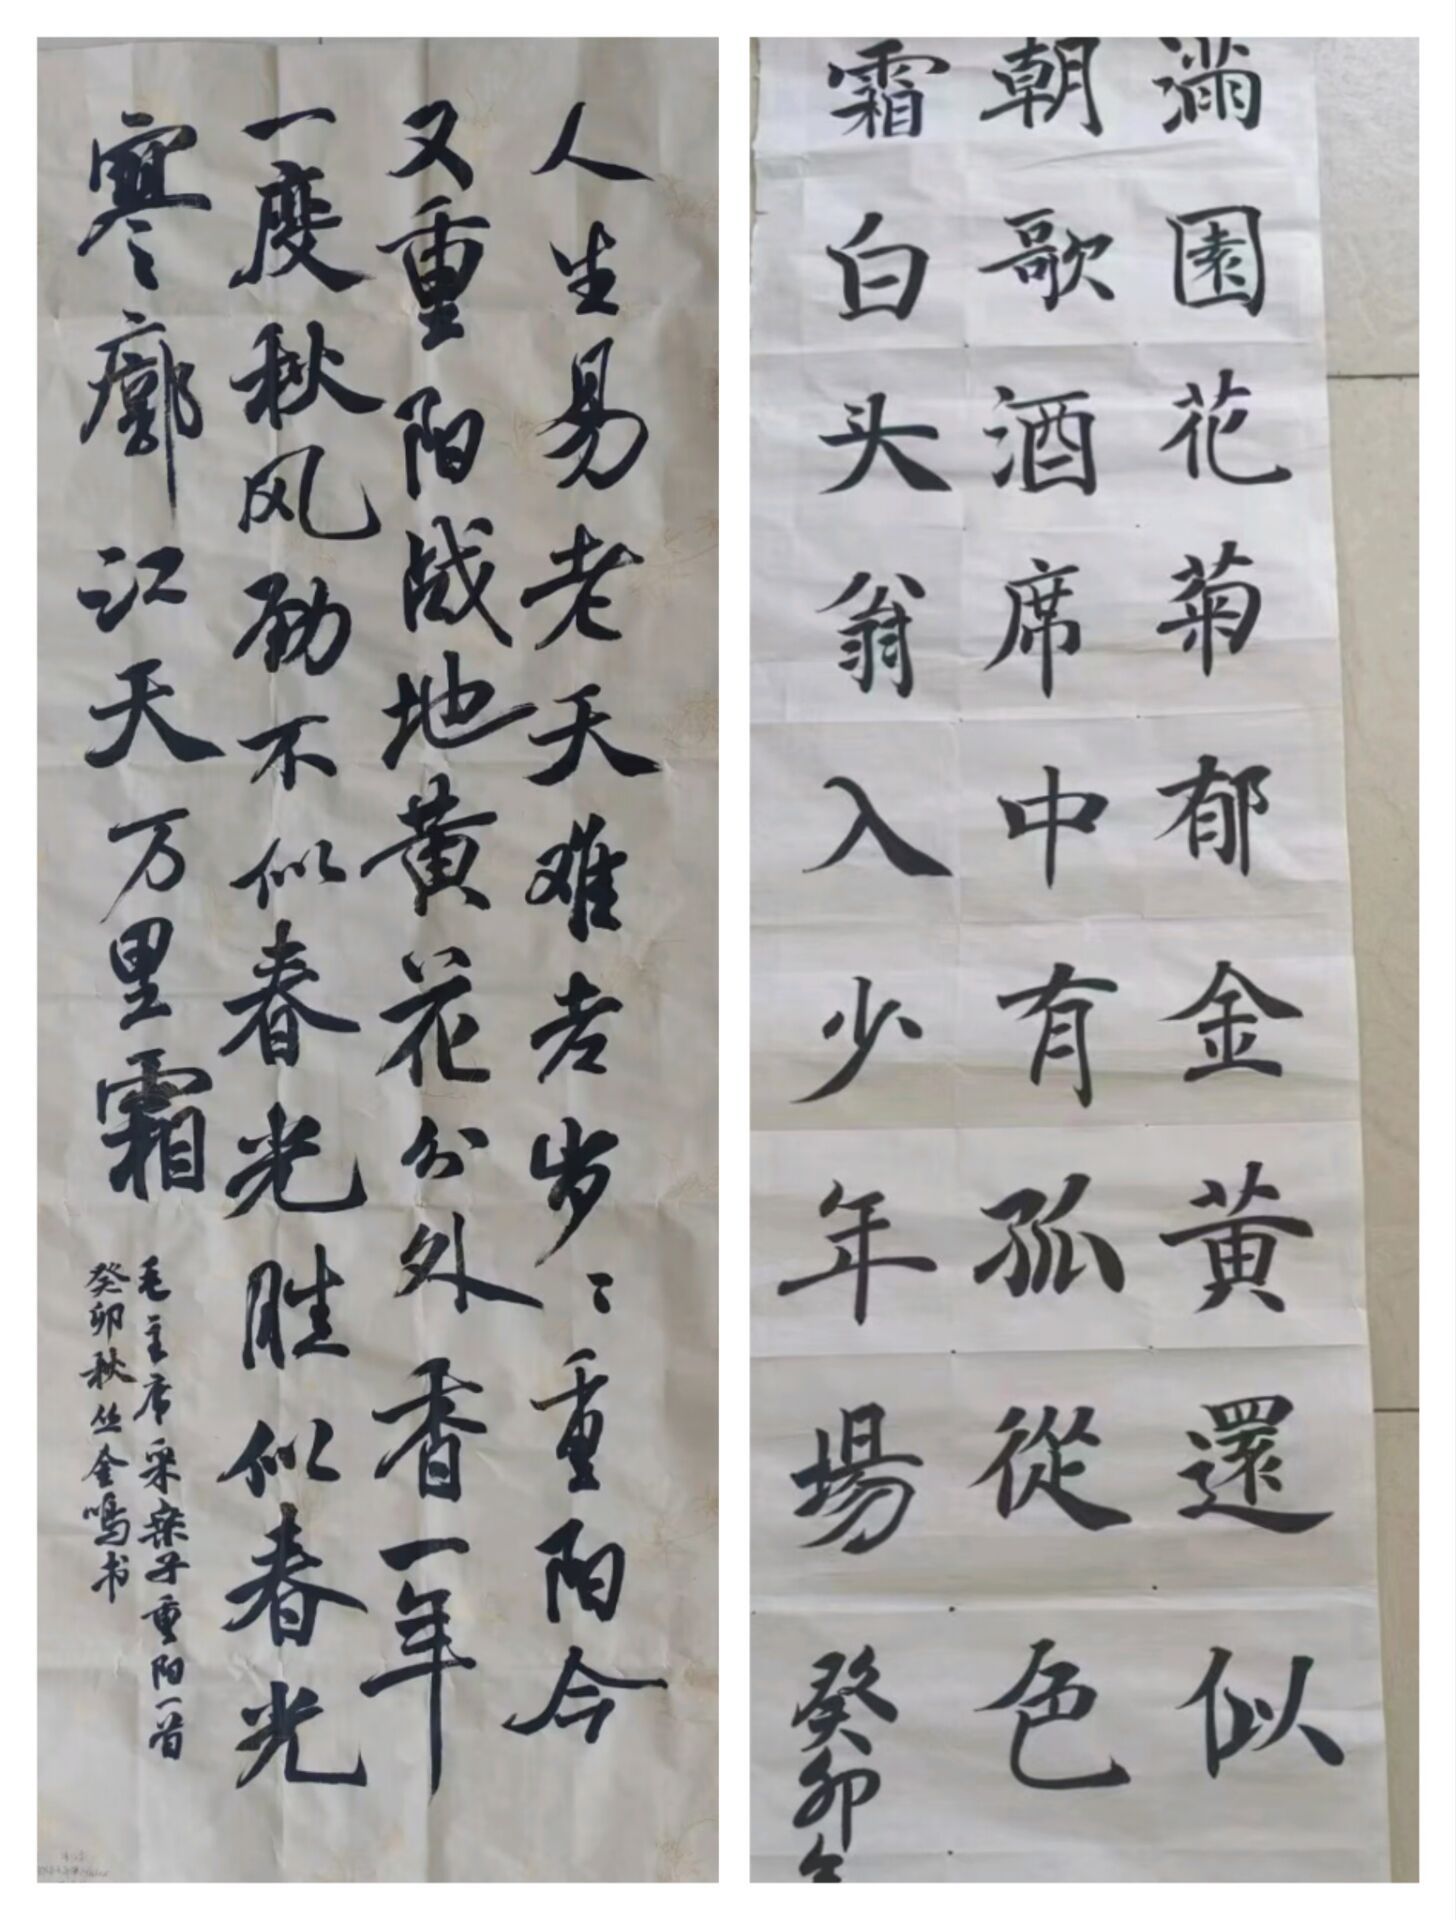 人生易老天难老岁々重阳今
又重阳战地黄花分外香一年
一度秋风劲不似春光胜似春光
寥廓江天万里霜
毛主席采桑子重阳一首
癸卯秋丛金鸣书
滿園花菊郁金黄還似
朝歌酒席中有孤從色
霜白头翁入少年場
癸卯